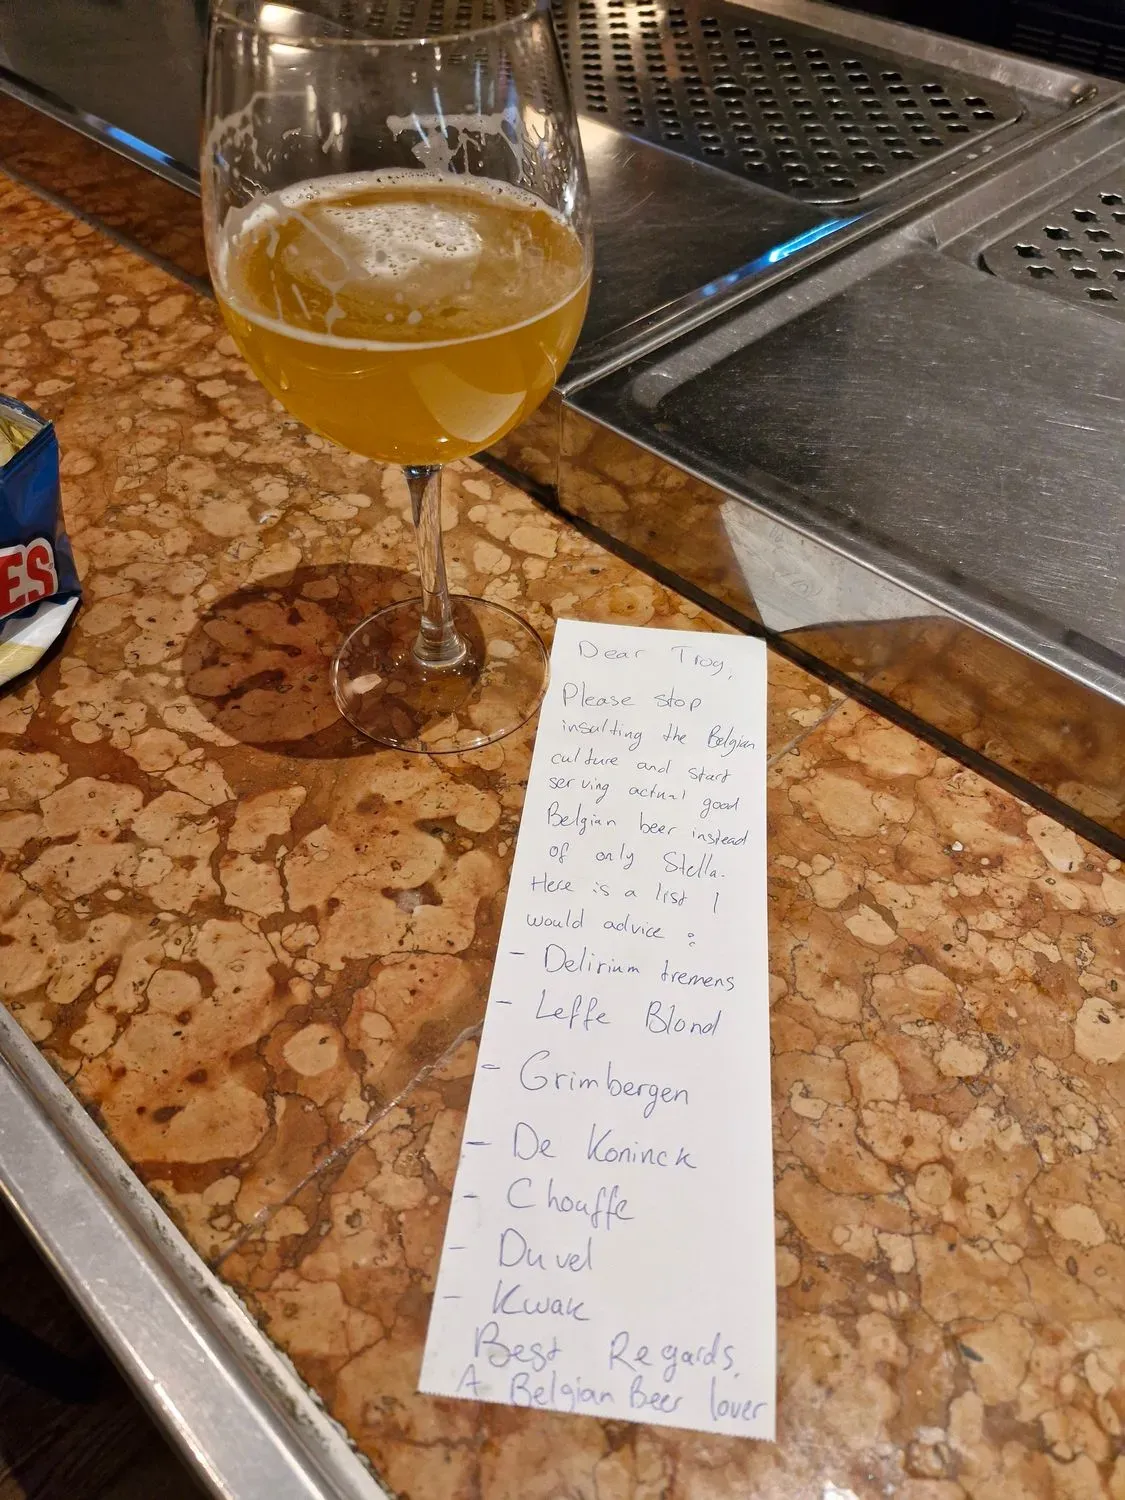 ES
Dear Trog,
Please stop
insulting the Belgian
culture and start
serving actual good
Belgian beer instead
of only Stella.
Here is a list I
would advice :
- Delirium tremens
- Leffe Blond
- Grimbergen
- De Koninck
- Chouffe
- Duvel
- Kwak
Best Regards,
A Belgian Beer lover